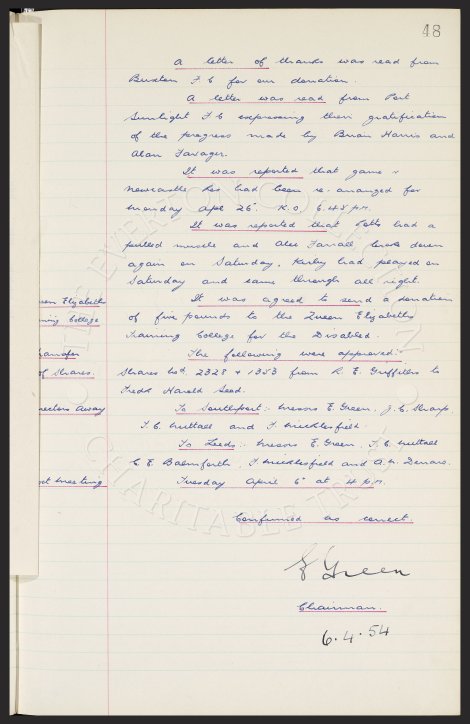 48
A letter of thanks was read from
Buxton F C for our donation.
A letter was read from Port
Sunlight F C expressing their gratification
of the progress made by Brian Harris and
Alan
It was reported that game v
Newcastle Res had been re-arranged for
Monday Apl 26 K.O. 6.45 p.m.
It was reported that Potts had a
pulled muscle and Alec Farrall broke down
again on Saturday. Kirby had played on
Saturday and came through all right.
een Elizabeths
ning College
It was agreed to send a donation
of five pounds to the Queen Elizabeths
Training College for the Disabled.
ransfer
of Shares.
The following were approved:-
Shares Nos. 2328 & 1353 from R. E. Griffiths to
Fredk Harold Seed.
rectors Away
To Southport:- Messrs E. Green, J. C. Sharp,
T. C. Nuttall and F. Micklesfield.
To Leeds:- Messrs E. Green, T. C. Nuttall
C. E. Balmforth, F Micklesfield and
xt Meeting
Tuesday April 6th at 4 p.m.
Confirmed as correct.
E Green
Chairman.
6.4.54
EVERTON COLLECTION
CHARITABLE TRUST